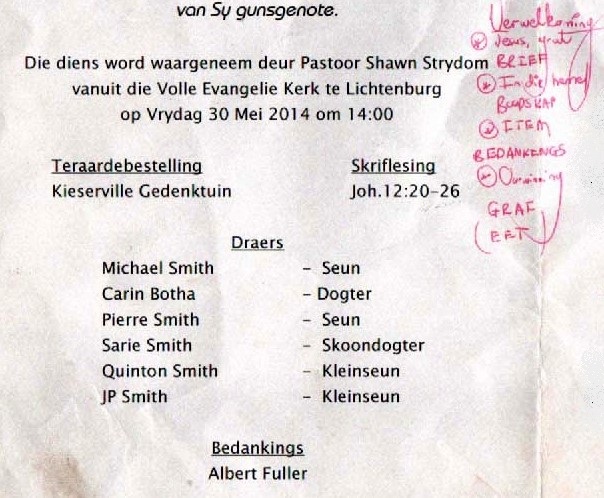 van Sy gunsgenote.
Die diens word waargeneem deur Pastoor Shawn Strydom
vanuit die Volle Evangelie Kerk te Lichtenburg
op Vrydag 30 Mei 2014 om 14:00
Teraardebestelling
Kieserville Gedenktuin
Skriflesing
Joh.12:20-26
Draers
Michael Smith – Seun
Carin Botha – Dogter
Pierre Smith – Seun
Sarie Smith – Skoondogter
Quinton Smith – Kleinseun
JP Smith – Kleinseun
Bedankings
Albert Fuller
Verwelkoming
BRIEF
In die hemel
BOODSKAP
ITEM
BEDANKENGS
GRAF
(EET)